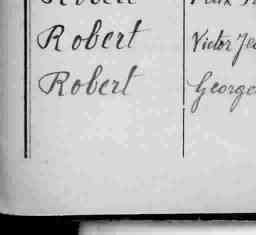 Robert
Robert Victor Je
Robert George